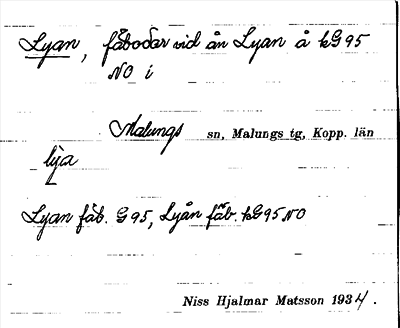 Lyan, fäbodar vid ån Lyan å kG95
NO i
Malungs sn, Malungs tg, Kopp. län
lya
Lyan fäb. G95, Lyån fäb. kG95NO
Niss Hjalmar Matsson 1934.